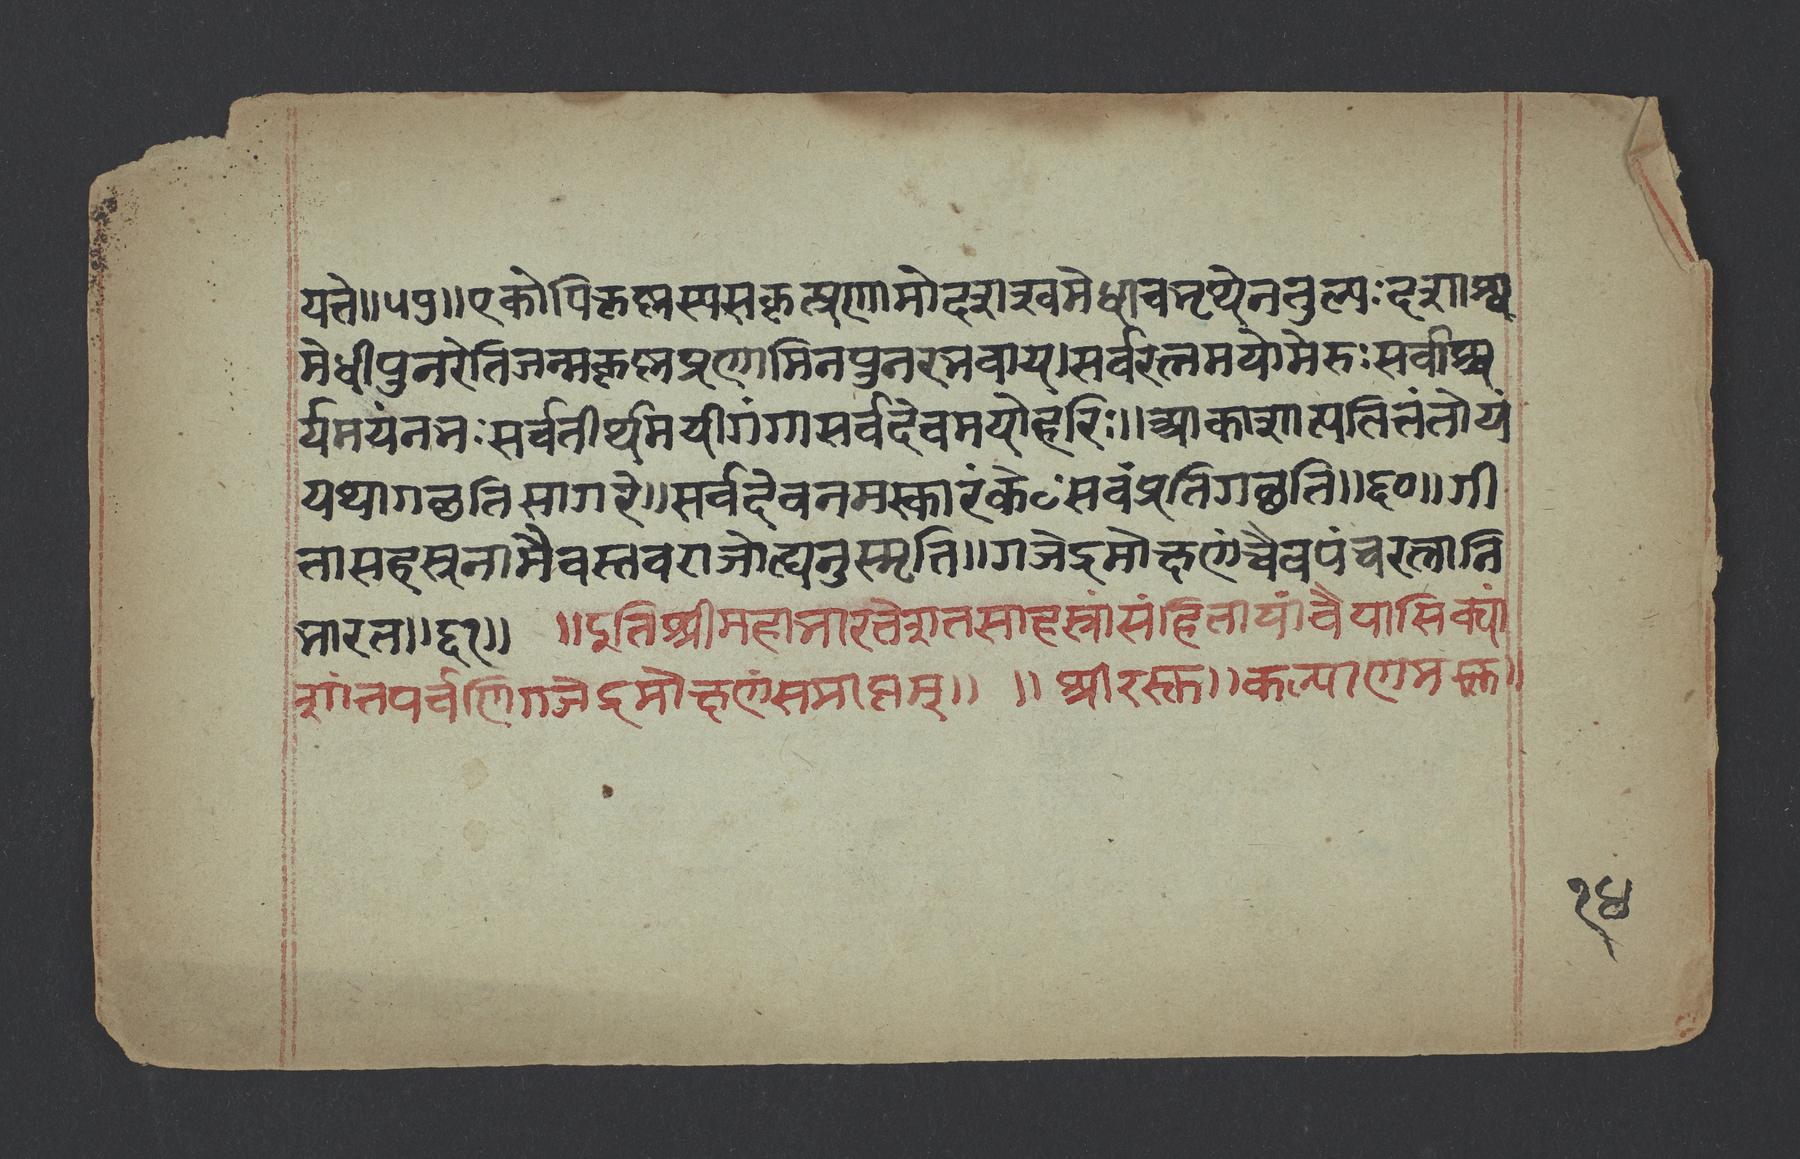 यते॥५९॥एकोपिकृष्णस्यसकृत्प्रणामोदशाश्वमेधावभृथेनतुल्यः दशाश्व
मेधीपुनरेतिजन्मकृष्णप्रणामिनपुनरभवाय।सर्वरत्नमयोमेरुः सर्वाश्च
र्यमयंनभः सर्वतीर्थमयीगंगासर्वदेवमयोहरिः॥आकाशात्पतितंतोयं
यथागछतिसागरे॥सर्वदेवनमस्कारंकेशवंप्रतिगछति॥६०॥गी
तासहस्रनामैवस्तवराजोत्द्यनुस्मृति॥गजेंद्रमोक्षणंचैवपंचरत्नानि
भारत॥६१॥ ॥इतिश्रीमहाभारतेशतसाहस्त्रांसंहितायांवैयासिक्यां
शांतपर्वणिगजेंद्रमोक्षणंसमाप्तम्॥ ॥श्रीरस्तु॥कल्याणमस्तु॥
१४